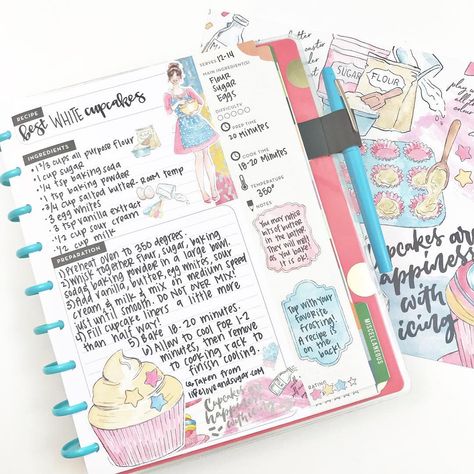 RECIPE
best WHITE cupcakes
SERVES 12-14
MAIN INGREDIENT(S)
Flour
Sugar
Eggs
DIFFICULTY
PREP TIME
20 minutes
COOK TIME
18-20 minutes
TEMPERATURE
350°
NOTES
You may notice
lots of butter
in the bottom
that will melt
as you bake
it is ok!
Top with your
favorite
frosting!
A recipe
is on
the back!
RATING
INGREDIENTS
1 2/3 cups all purpose flour
1 cup sugar
1/4 tsp baking soda
1 tsp baking powder
3/4 cup salted butter-room temp
3 egg whites
3 tsp vanilla extract
1/2 cup sour cream
1/2 cup milk
PREPARATION
1) Preheat oven to 350 degrees.
2) Whisk together flour, sugar, baking
soda & baking powder in a large bowl.
3) Add vanilla, butter, egg whites, sour
cream, & milk & mix on medium speed
just until smooth. Do not over mix!
4) Fill cupcake liners a little more
than half way. 5) Bake 18-20 minutes.
6) Allow to cool for 1-2
minutes, then remove
to cooking rack to
finish cooling.
Taken from
lifeloveandsugar.com
Cupcakes are
happiness
with icing
MISCELLANEOUS
SUGAR
FLOUR
Cupcakes are
happiness
with
icing